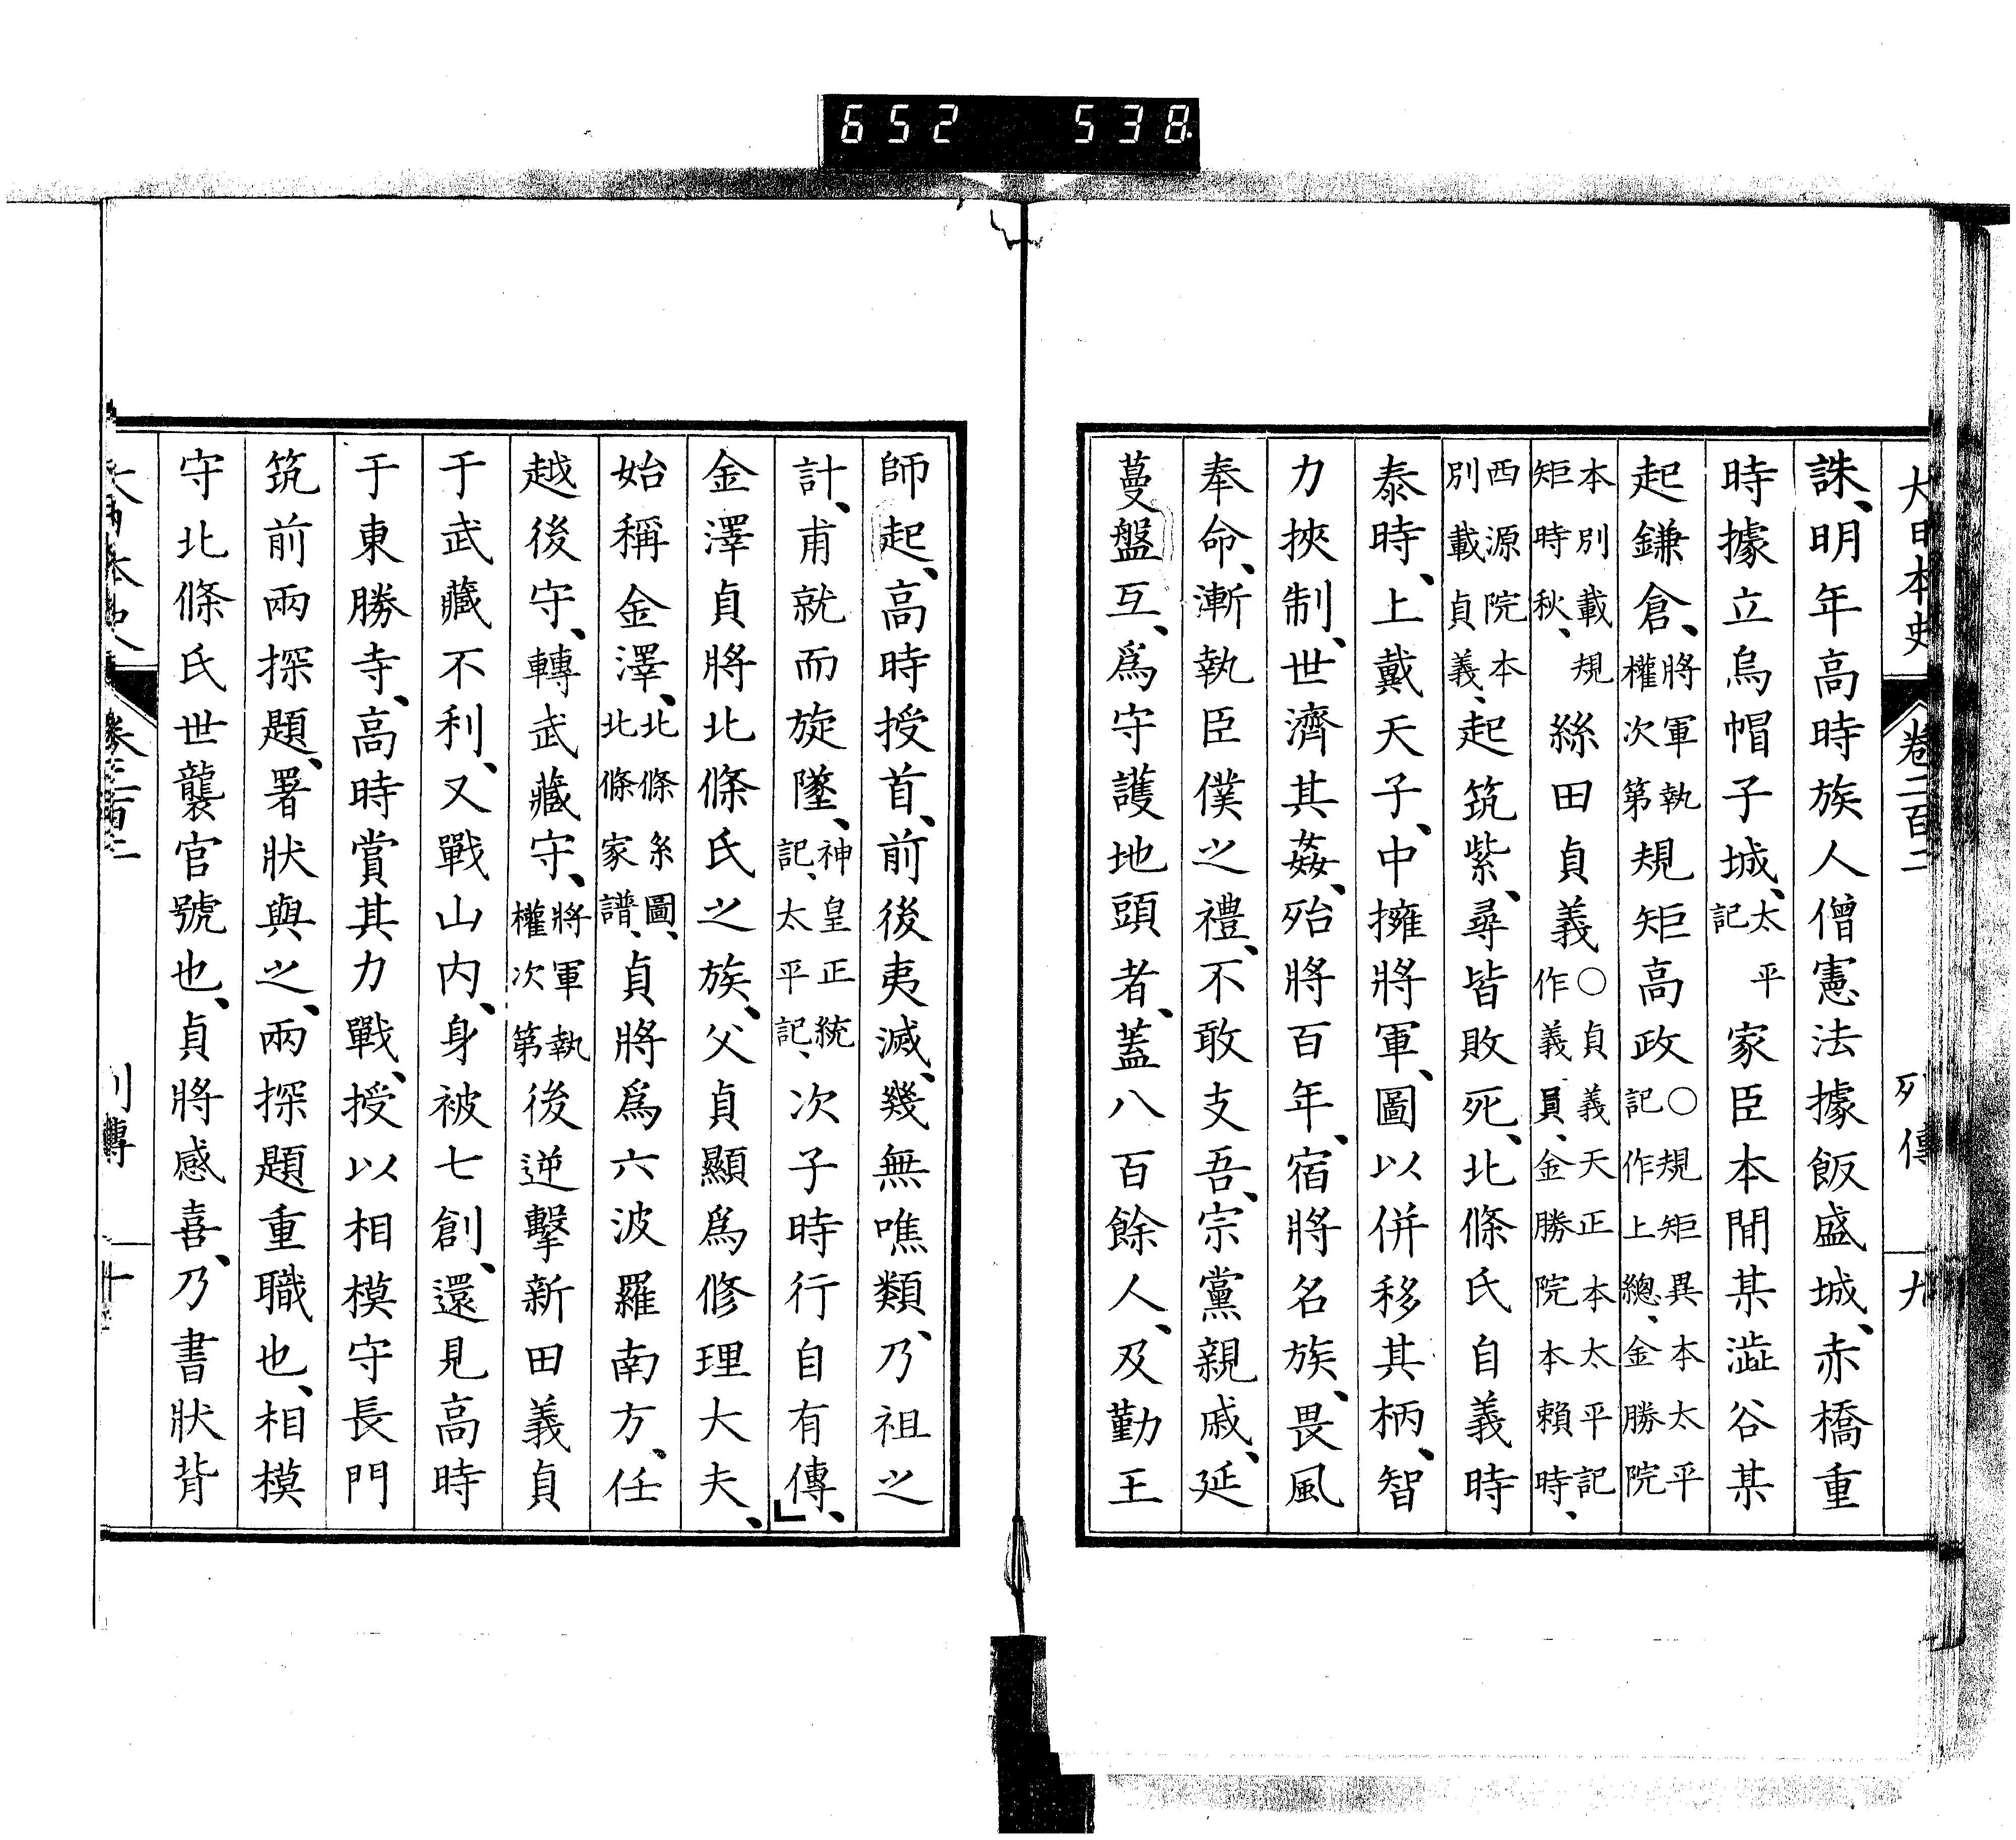 652 538
大日本史 卷二百二 列傳 九
誅、明年高時族人僧憲法據飯盛城、赤橋重
時據立烏帽子城、太平記家臣本間某澁谷某
起鎌倉、將軍執權次第規矩高政○規矩異本太平記作上總、金勝院
本別載規矩時秋、絲田貞義○貞義天正本太平記作義員、金勝院本賴時、
西源院本別載貞義、起筑紫、尋皆敗死、北條氏自義時
泰時、上戴天子、中擁將軍、圖以併移其柄、智
力挾制、世濟其姦、殆將百年、宿將名族、畏風
奉命、漸執臣僕之禮、不敢支吾、宗黨親戚、延
蔓盤互、爲守護地頭者、蓋八百餘人、及勤王
師起、高時授首、前後夷滅、幾無噍類、乃祖之
計、甫就而旋墜、神皇正統記、太平記、次子時行自有傳、
金澤貞將北條氏之族、父貞顯爲修理大夫、
始稱金澤、北條系圖、北條家譜、貞將爲六波羅南方、任
越後守、轉武藏守、將軍執權次第後逆擊新田義貞
于武藏不利、又戰山内、身被七創、還見高時
于東勝寺、高時賞其力戰、授以相模守長門
筑前兩探題、署狀與之、兩探題重職也、相模
守北條氏世襲官號也、貞將感喜、乃書狀背
大日本史 卷二百二 列傳 十